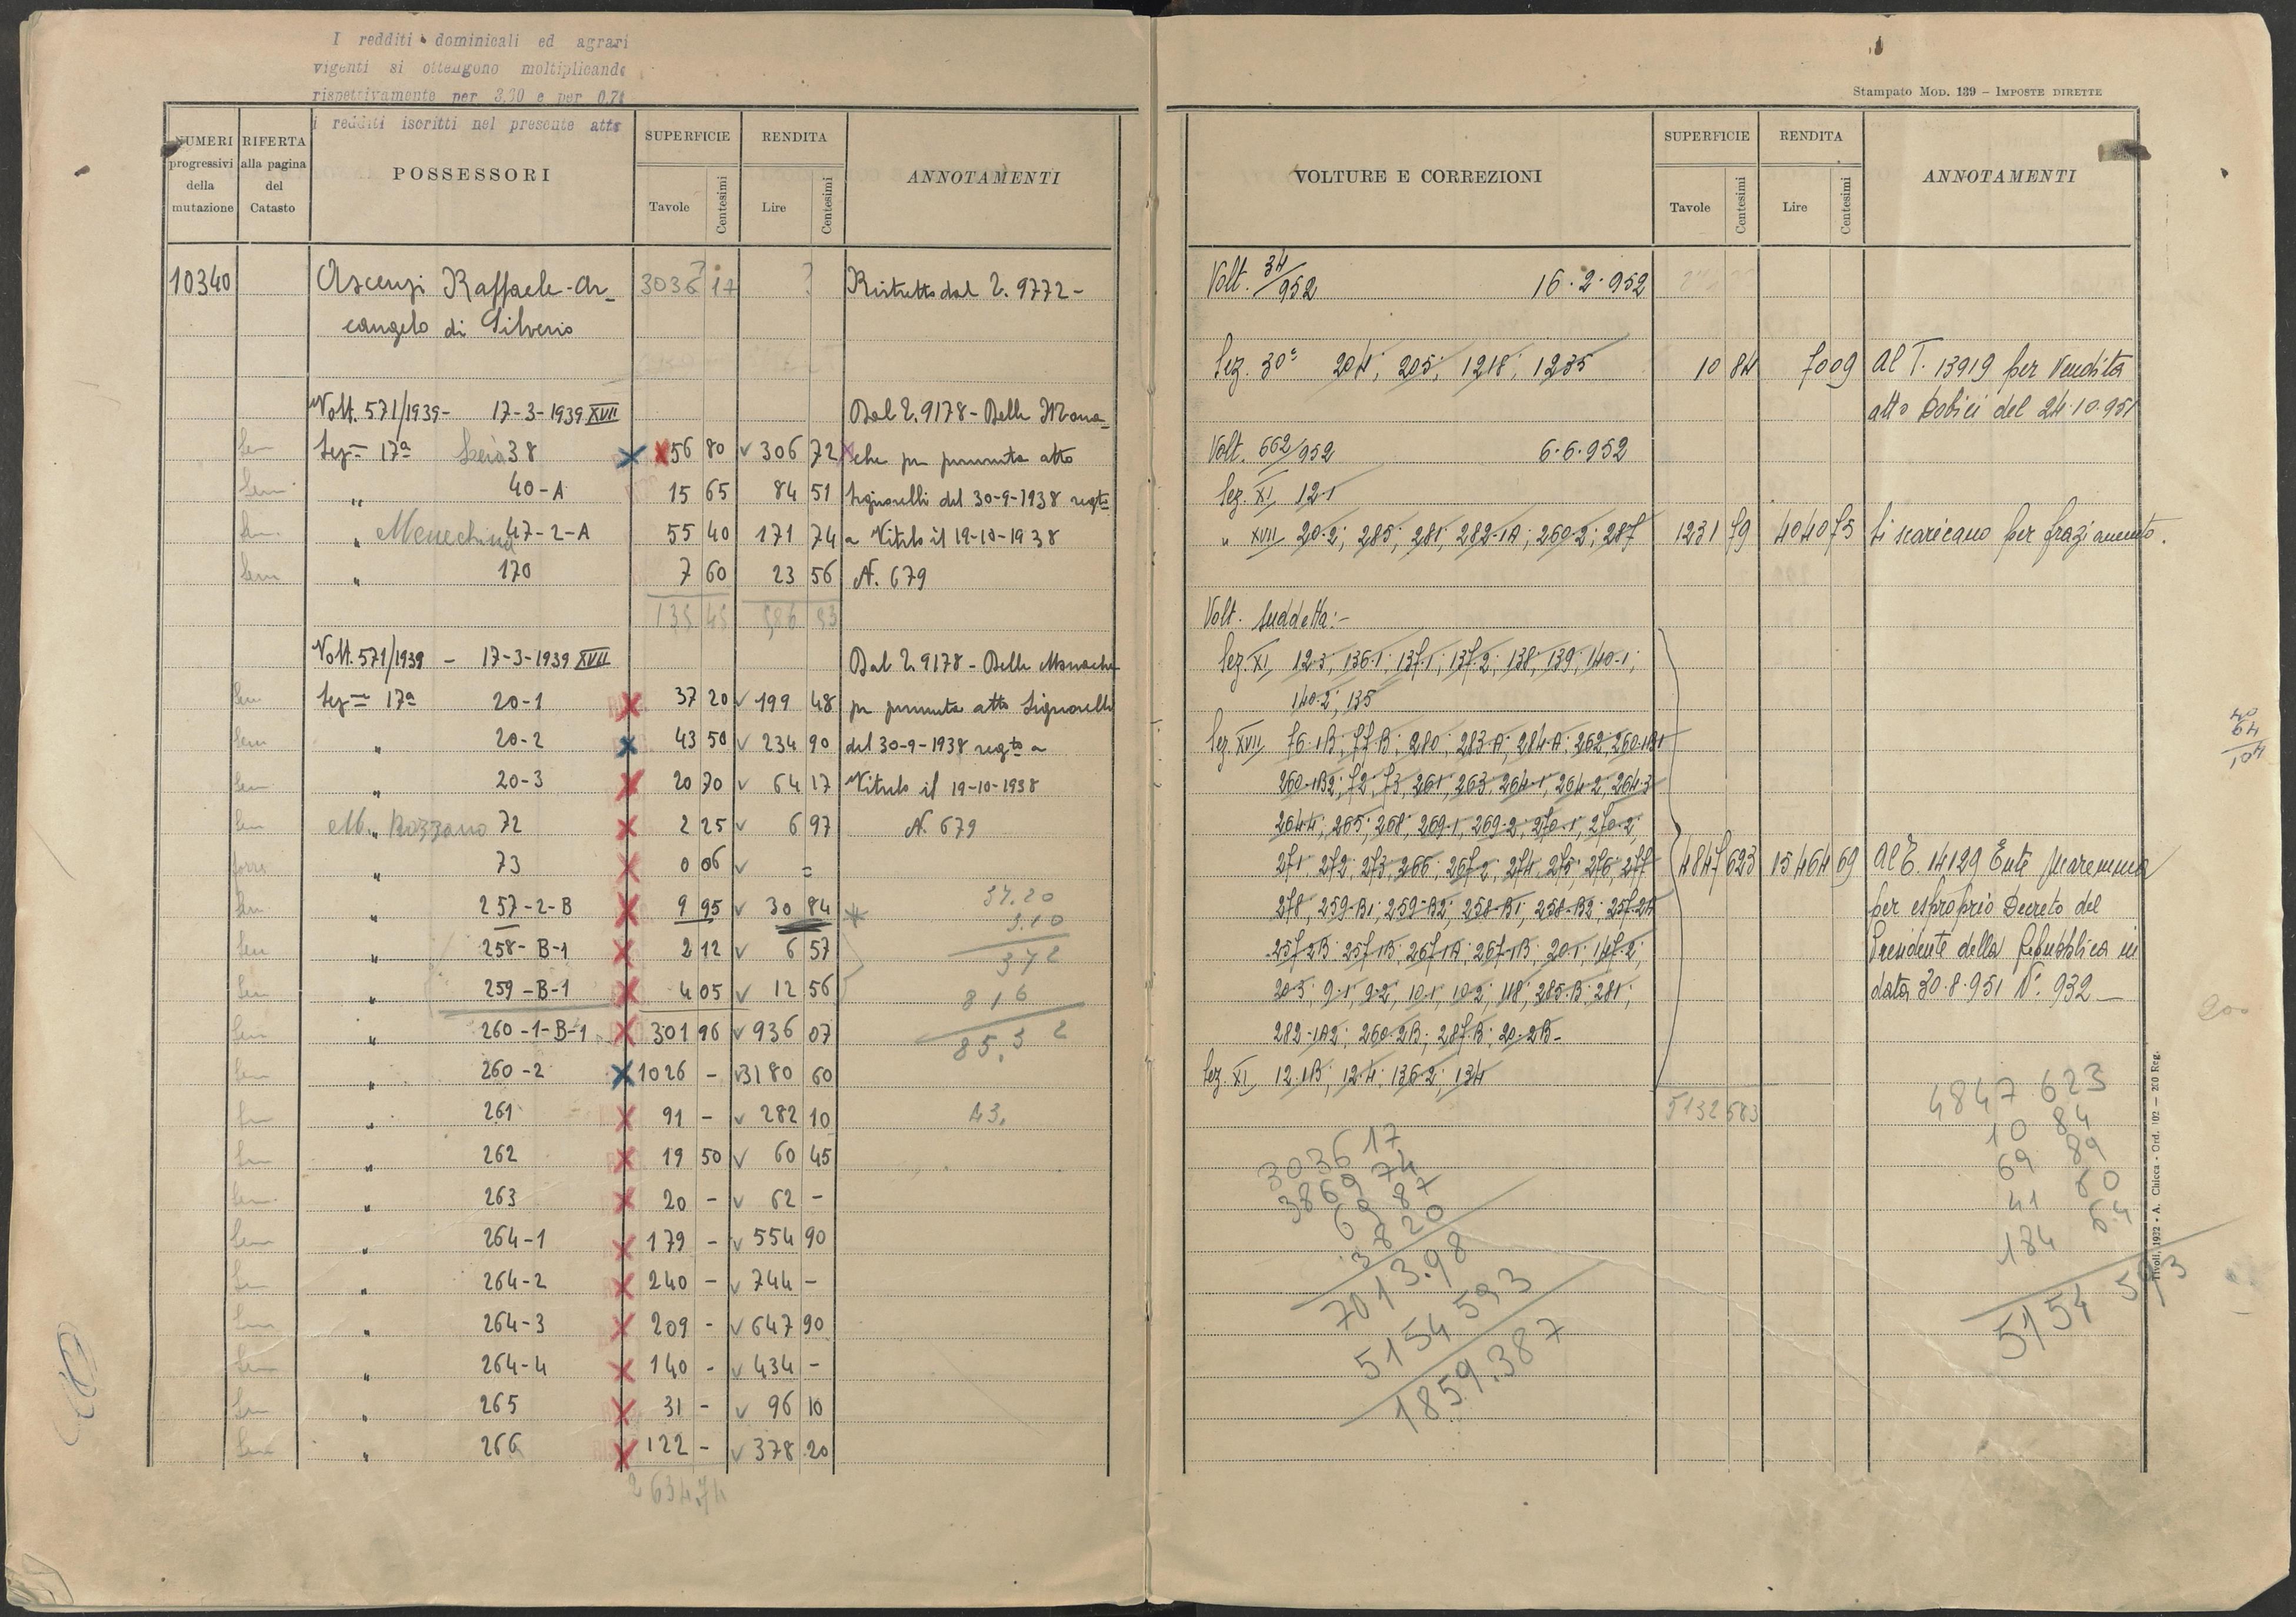 I redditi dominicali ed agrari
vigenti si ottengono moltiplicando
rispettivamente per 3,30 e per
i redditi iscritti nel presente atto
NUMERI progressivi della mutazione
RIFERTA alla pagina del Catasto
POSSESSORI
SUPERFICIE
Tavole Centesimi
RENDITA
Lire Centesimi
ANNOTAMENTI
10340 Ascenzi Raffaele-Ar- 3036 17 ? ? Ristretto dal T. 9772 -
cangelo di Silverio
Volt. 571/1939 - 17-3-1939 XVII Dal T. 9178 - Delle Mona-
Sem Sez= 17ª 38 56 80 306 72 che per permuta atto
Sem " 40-A 15 65 84 51 Signorelli del 30-9-1938 regto
Sem " 47-2-A 55 40 171 74 a Viterbo il 19-10-1938
Sem " 170 7 60 23 56 N. 679
135 45 586 53
Volt. 571/1939 - 17-3-1939 XVII Dal T. 9178 - Delle Monache
Sem Sez= 17ª 20-1 37 20 199 48 per permuta atto Signorelli
Sem " 20-2 43 50 234 90 del 30-9-1938 regto a
Sem " 20-3 20 70 64 17 Viterbo il 19-10-1938
Sem M. " Bozzano 72 2 25 6 97 N. 679
" 73 0 06 =
Sem " 257-2-B 9 95 30 84 37.20
Sem " 258-B-1 2 12 6 57
Sem " 259-B-1 4 05 12 56 816
Sem " 260-1-B-1 301 96 936 07
Sem " 260-2 1026 - 3180 60
Sem " 261 91 - 282 10
Sem " 262 19 50 60 45
Sem " 263 20 - 62 -
Sem " 264-1 179 - 554 90
Sem " 264-2 240 - 744 -
Sem " 264-3 209 - 647 90
Sem " 264-4 140 - 434 -
Sem " 265 31 - 96 10
Sem " 266 122 - 378 20
2634.74
Stampato Mod. 139 - Imposte dirette
VOLTURE E CORREZIONI
SUPERFICIE
Tavole Centesimi
RENDITA
Lire Centesimi
ANNOTAMENTI
Volt. 34/952 16.2.952
Sez. 30ª 204; 205; 1218; 1235 10 84 70 09 Al T. 13919 per Vendita
atto Dobici del 24.10.951
Volt. 662/952 6.6.952
Sez. XI 12-1
" XVII 20-2; 285; 281; 282-1A; 260-2; 287 1231 79 4040 75 Si scaricano per frazionamento.
Volt. suddetta:-
Sez. XI 12-3; 136-1; 137-1; 137-2; 138; 139; 140-1;
140-2; 135
Sez. XVII 76-1B; 77-B; 280; 283-A; 284-A; 262; 260-1B1
260-1B2; 72; 73; 261; 263; 264-1; 264-2; 264-3
264-4; 265; 268; 269-1; 269-2; 270-1; 270-2;
271; 272; 273; 266; 267-2; 274; 275; 276; 277 4847 623 15464 69 Al T. 14129 Ente Maremma
278; 259-B1; 259-B2; 258-B1; 258-B2; 257-2A per esproprio Decreto del
257-2B; 257-1B; 267-1A; 267-1B; 20-1; 147-2; Presidente della Repubblica in
20-3; 9-1; 9-2; 10-1; 10-2; 118; 285-B; 281; data 30.8.951 N. 932 -
282-1A2; 260-2B; 287-B; 20-2B-
Sez. XI 12-1B; 12-4; 136-2; 134
5132 683
3036 17
3869 74
69 87
38 20
7013.98
5154 593
1859.387
4847 623
10 84
69 89
41 60
184 64
5154 593
40
64
104
200
Tivoli, 1922 - A. Chicca - Ord. 102 - 200 Reg.